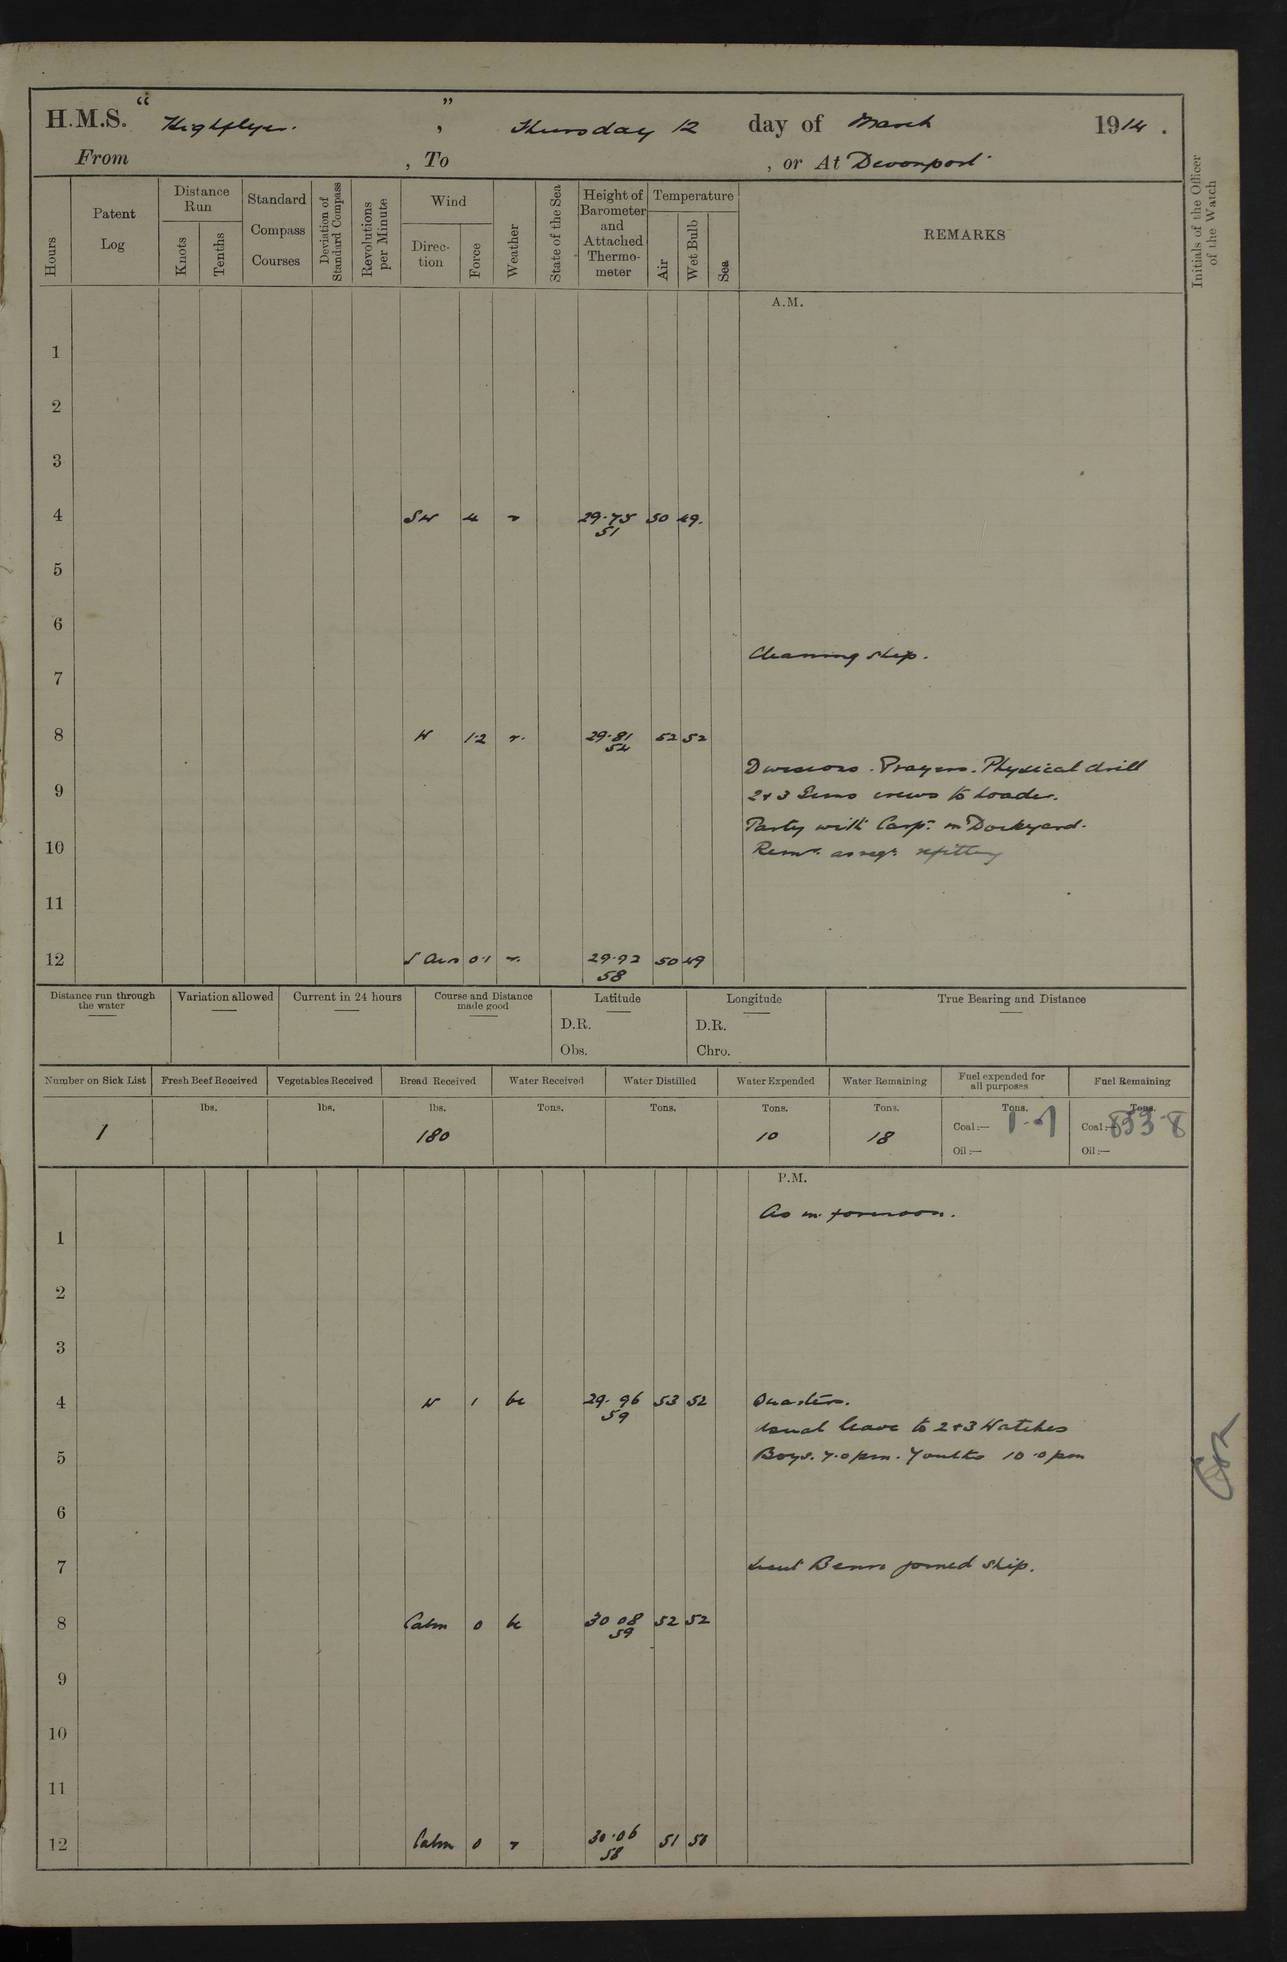 H.M.S. “ Highflyer. ” , Thursday 12 day of March 1914.
From , To , or At Devonport
Hours
Patent Log
Distance Run
Knots
Tenths
Standard Compass Courses
Deviation of Standard Compass
Revolutions per Minute
Wind
Direction
Force
Weather
State of the Sea
Height of Barometer and Attached Thermometer
Temperature
Air
Wet Bulb
Sea
REMARKS
Initials of the Officer of the Watch
A.M.
1
2
3
4 SW 4 r 29.75 50 49.
51
5
6
Cleaning ship.
7
8 W 1.2 r. 29.81 52 52
54
Divisions. Prayers. Physical drill
9
2 & 3 Guns crews to Loader.
Party with Carpr in Dockyard.
10
Remr as reqr refitting
11
12 S Airs 0.1 r. 29.92 50 49
58
Distance run through the water
Variation allowed
Current in 24 hours
Course and Distance made good
Latitude
D.R.
Obs.
Longitude
D.R.
Chro.
True Bearing and Distance
Number on Sick List
Fresh Beef Received
Vegetables Received
Bread Received
Water Received
Water Distilled
Water Expended
Water Remaining
Fuel expended for all purposes
Fuel Remaining
lbs. lbs. lbs. Tons. Tons. Tons. Tons. Tons. Tons.
1 180 10 18 Coal:— Coal:— 853.8
Oil:— Oil:—
P.M.
As in forenoon.
1
2
3
4 N 1 bc 29.96 53 52 Quarters.
59
Usual leave to 2 & 3 Watches
5 Boys. 7.0 pm. Youths 10.0 pm
6
7 Lieut joined ship.
8 Calm 0 bc 30 08 52 52
59
9
10
11
12 Calm 0 r 30.06 51 50
58